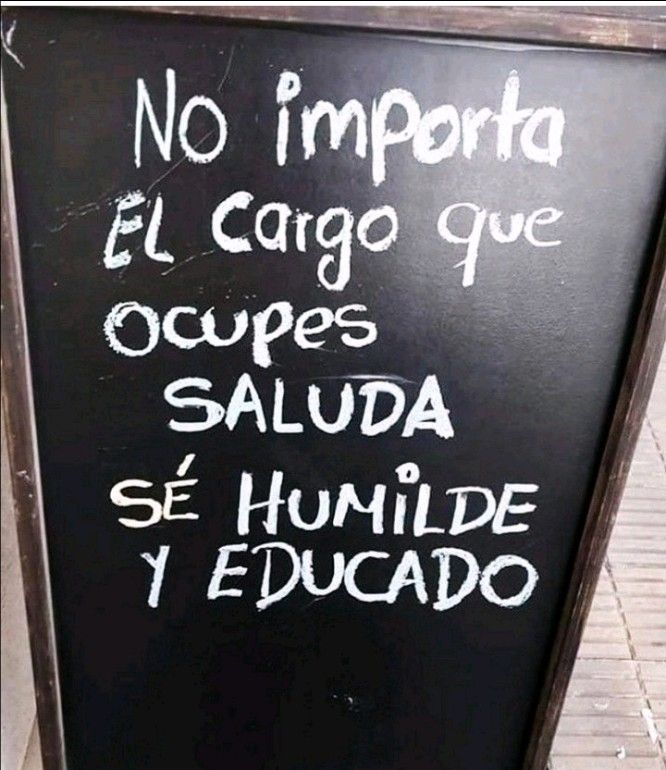 No importa
EL cargo que
ocupes
SALUDA
SÉ HUMiLDE
Y EDUCADO